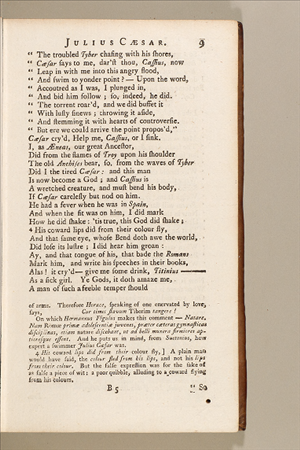 JULIUS CÆSAR. 9
“ The troubled Tyber chafing with his ſhores,
“ Cæſar ſays to me, dar'ſt thou, Caſſius, now
“ Leap in with me into this angry flood,
“ And ſwim to yonder point ? — Upon the word,
“ Accoutred as I was, I plunged in,
“ And bid him follow ; ſo, indeed, he did.
“ The torrent roar'd, and we did buffet it
“ With luſty ſinews ; throwing it aſide,
“ And ſtemming it with hearts of controverſie.
“ But ere we could arrive the point propos'd,”
Cæſar cry'd, Help me, Caſſius, or I ſink.
I, as Æneas, our great Anceſtor,
Did from the flames of Troy upon his ſhoulder
The old Anchiſes bear, ſo, from the waves of Tyber
Did I the tired Cæſar : and this man
Is now become a God ; and Caſſius is
A wretched creature, and muſt bend his body,
If Cæſar careleſly but nod on him.
He had a fever when he was in Spain,
And when the fit was on him, I did mark
How he did ſhake : 'tis true, this God did ſhake ;
4 His coward lips did from their colour fly,
And that ſame eye, whoſe Bend doth awe the world,
Did loſe its luſtre ; I did hear him groan :
Ay, and that tongue of his, that bade the Romans
Mark him, and write his ſpeeches in their books,
Alas ! it cry'd— give me ſome drink, Titinius ———
As a ſick girl. Ye Gods, it doth amaze me,
A man of ſuch a feeble temper ſhould
of arms. Therefore Horace, ſpeaking of one enervated by love,
ſays, Cur timet flavum Tiberim tangere !
On which Hermannus Figulus makes this comment — Natare,
Nam Romæ primæ adoleſcentiæ juvenes, præter cæteras gymnaſticas
diſciplinas, etiam natare diſcebant, ut ad belli munera firmiores ap-
tioreſque eſſent. And he puts us in mind, from Suetonius, how
expert a ſwimmer Julius Cæſar was.
4 His coward lips did from their colour fly, ] A plain man
would have ſaid, the colour fled from his lips, and not his lips
from their colour. But the falſe expreſſion was for the ſake of
as falſe a piece of wit : a poor quibble, alluding to a coward flying
from his colours.
B 5 “ So